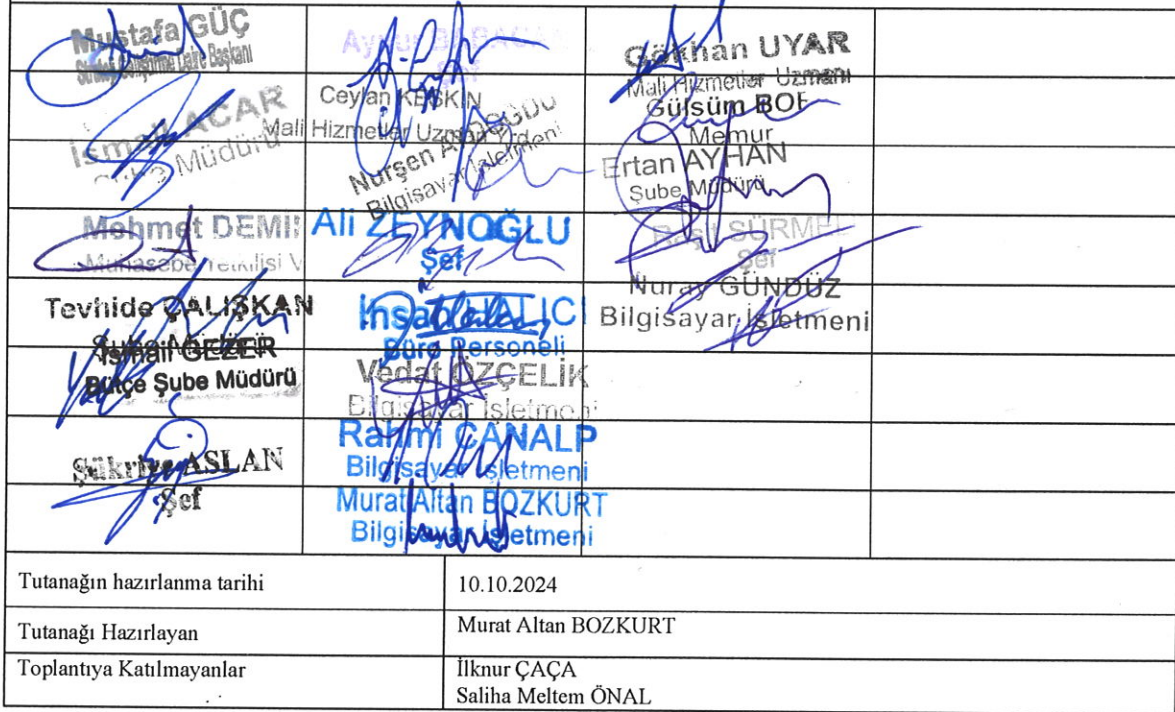 Mustafa GÜÇ
Strateji Geliştirme Daire Başkanı
İsmail ACAR
Şube Müdürü
Mehmet DEMİ
Muhasebe Yetkilisi V
Tevhide ÇALIŞKAN
Şube Müdürü
İsmail GEZER
Bütçe Şube Müdürü
Şükriye ASLAN
Şef
Şef
Ceylan KESKİN
Mali Hizmetler Uzman Yrd.
Nurşen
Bilgisayar İşletmeni
Ali ZEYNOĞLU
Şef
İhsan HALICI
Büro Personeli
Vedat ÖZÇELİK
Bilgisayar İşletmeni
Rahmi CANALP
Bilgisayar İşletmeni
Murat Altan BOZKURT
Bilgisayar İşletmeni
Gökhan UYAR
Mali Hizmetler Uzmanı
Gülsüm
Memur
Ertan AYHAN
Şube Müdürü
Raşit SÜRME
Şef
Nuray GÜNDÜZ
Bilgisayar İşletmeni
Tutanağın hazırlanma tarihi 10.10.2024
Tutanağı Hazırlayan Murat Altan BOZKURT
Toplantıya Katılmayanlar İlknur ÇAÇA
Saliha Meltem ÖNAL